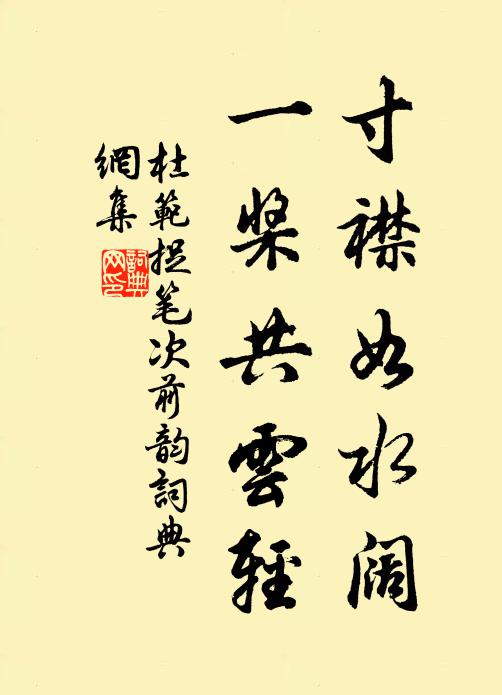 寸襟如水阔
一桨共雲輕
杜範捉笔次前韵詞典
網集
詞典
网印